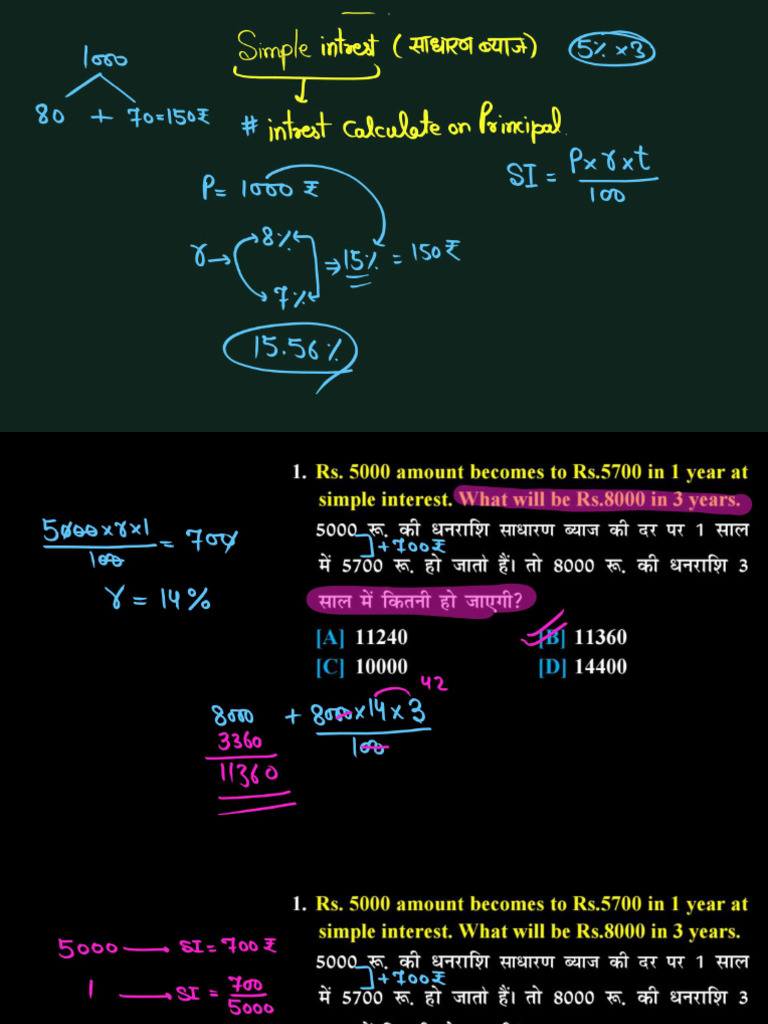 Simple intrest (साधारण ब्याज)
5% ×3
1000
80 + 70=150₹
# intrest calculate on Principal.
P= 1000 ₹
SI = P×r×t
100
r→
8%
7%
⇒ 15% = 150₹
15.56%
1. Rs. 5000 amount becomes to Rs.5700 in 1 year at
simple interest. What will be Rs.8000 in 3 years.
5000 रू. की धनराशि साधारण ब्याज की दर पर 1 साल
+700₹
में 5700 रू. हो जाता हैं। तो 8000 रू. की धनराशि 3
साल में कितनी हो जाएगी?
[A] 11240
[B] 11360
[C] 10000
[D] 14400
5000×r×1
100
= 700
r = 14%
42
8000 + 8000×14×3
100
3360
11360
1. Rs. 5000 amount becomes to Rs.5700 in 1 year at
simple interest. What will be Rs.8000 in 3 years.
5000 रू. की धनराशि साधारण ब्याज की दर पर 1 साल
+700₹
में 5700 रू. हो जाता हैं। तो 8000 रू. की धनराशि 3
5000 → SI = 700 ₹
1 → SI = 700
5000